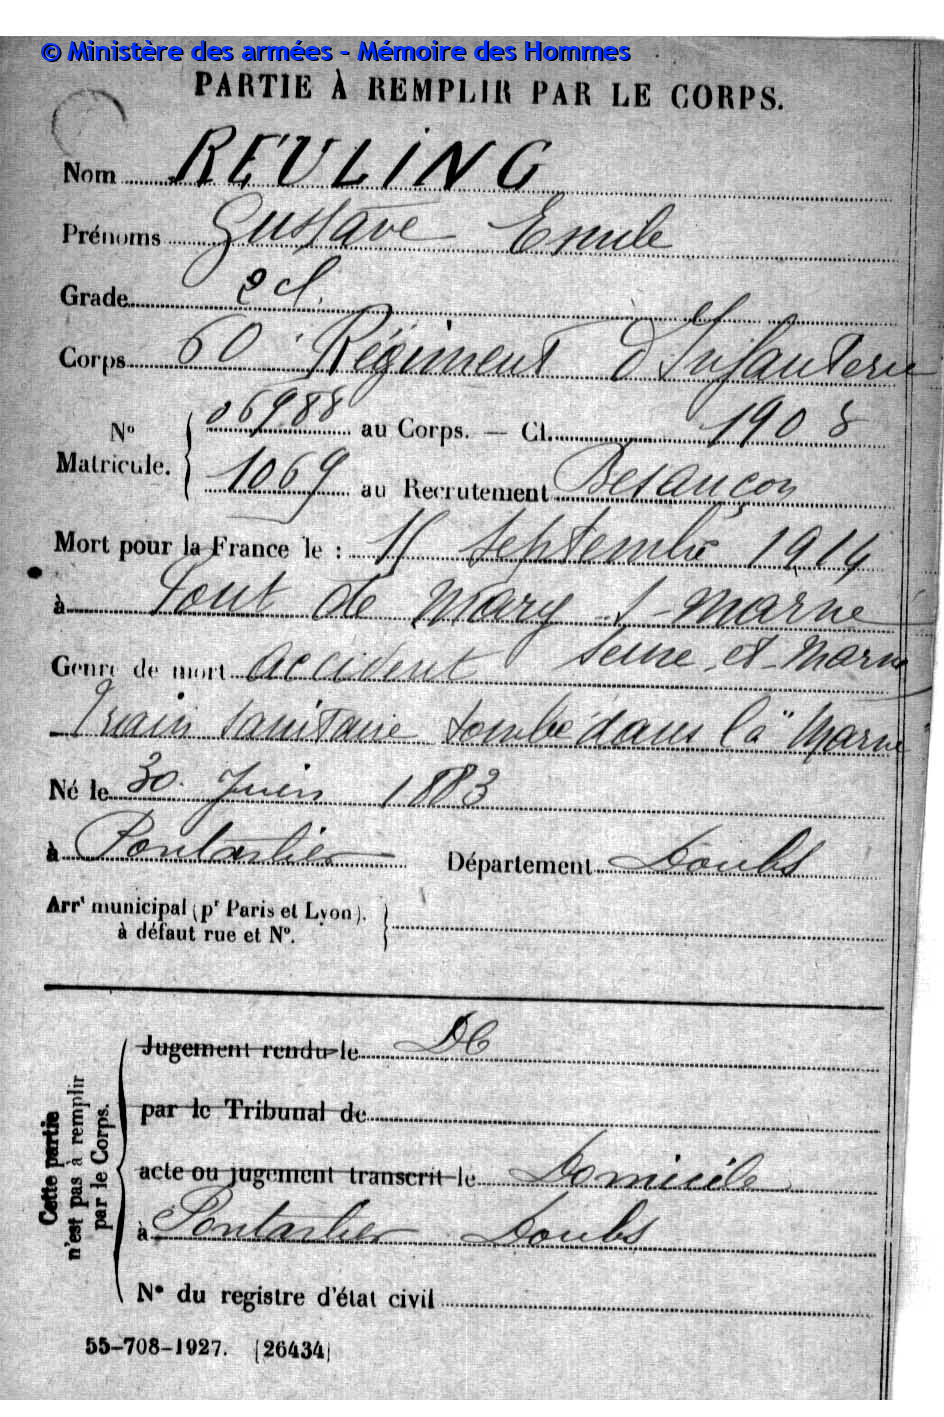 © Ministère des armées - Mémoire des Hommes
PARTIE À REMPLIR PAR LE CORPS.
Nom REULING
Prénoms Gustave Emile
Grade 2 cl.
Corps 60 Régiment d'Infanterie
No Matricule. 06988 au Corps. — Cl. 1908
1069 au Recrutement Besançon
Mort pour la France le : 15 Septembre 1914
à Pont de Mary s-Marne
Seine et Marne
Genre de mort accident
Train sanitaire tombé dans la "Marne"
Né le 30 Juin 1883
à Pontarlier Département Doubs
Arrt municipal (pr Paris et Lyon),
à défaut rue et No.
Cette partie n'est pas à remplir par le Corps.
Jugement rendu le DC
par le Tribunal de
acte ou jugement transcrit le Domicile
à Pontarlier Doubs
No du registre d'état civil
55-708-1927. [26434]